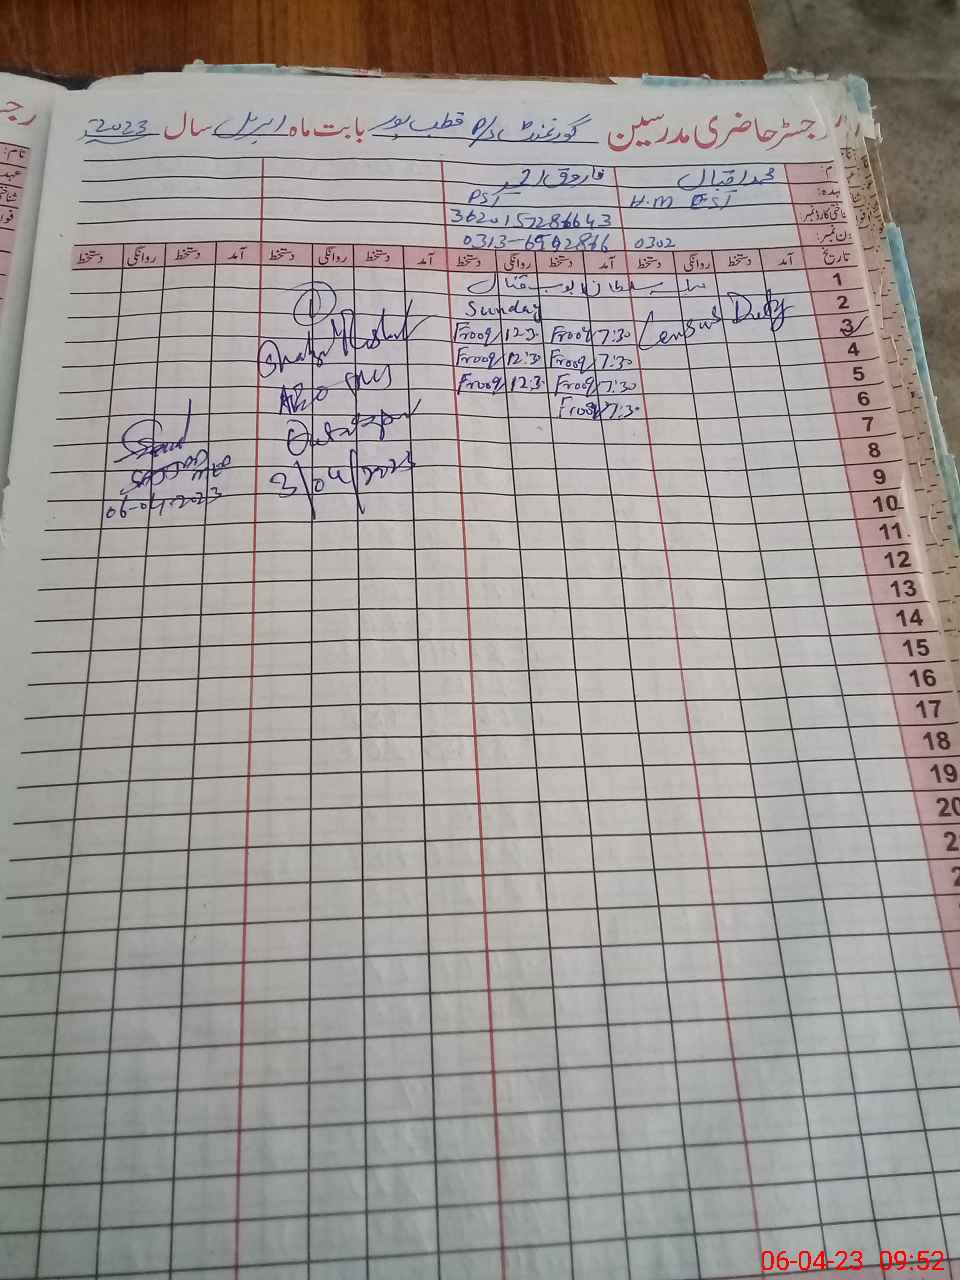 رجسٹر حاضری مدرسین گورنمنٹ P/S قطب پور بابت ماہ اپریل سال 2023
نام: محمد اقبال فاروق احمد
عہدہ: H.M EST PST
شناختی کارڈ نمبر: 3620157286643
فون نمبر: 0302 0313-6992876
تاریخ آمد دستخط روانگی دستخط آمد دستخط روانگی دستخط آمد دستخط روانگی دستخط آمد دستخط روانگی دستخط
1
2 Sunday
3 Census Duty 7:30 Frooq 12:30 Frooq
4 7:30 Frooq 12:30 Frooq
5 7:30 Frooq 12:30 Frooq
6 7:30 Frooq
7
8
9
10
11
12
13
14
15
16
17
18
19
20
2
2
1
3/04/2023
06-04-2023
06-04-23 09:52